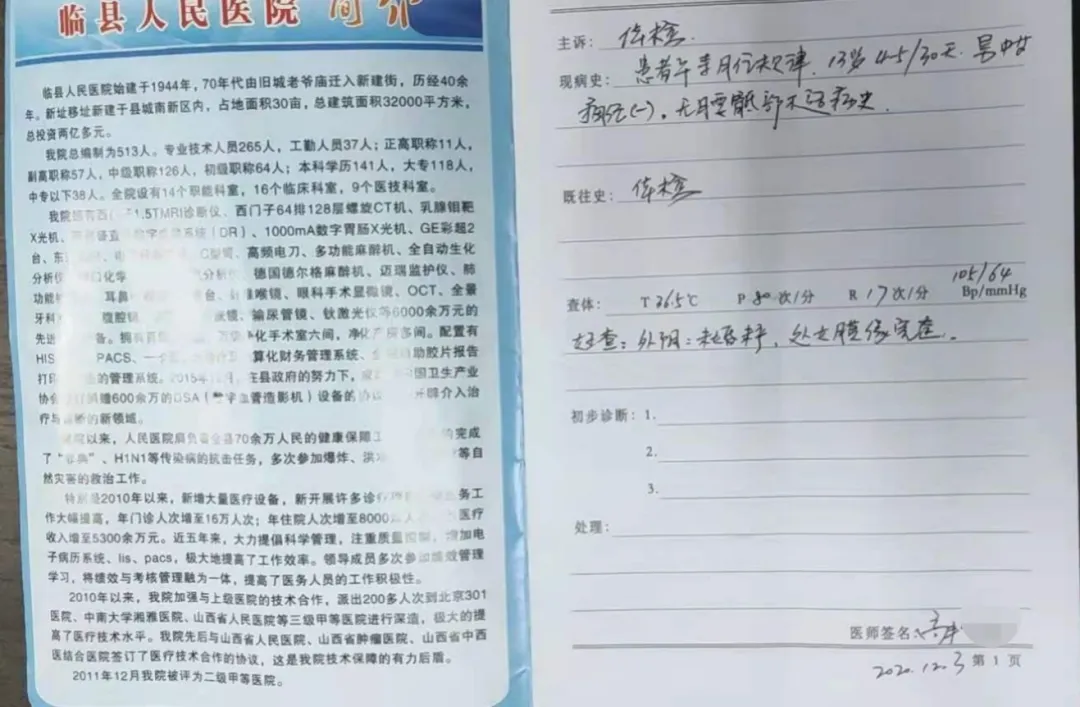 临县人民医院 简介
临县人民医院始建于1944年，70年代由旧城老爷庙迁入新建街，历经40余
年。新址移址新建于县城南新区内，占地面积30亩，总建筑面积32000平方米，
总投资两亿多元。
我院总编制为513人。专业技术人员265人，工勤人员37人；正高职称11人，
副高职称57人，中级职称126人，初级职称64人；本科学历141人，大专118人，
中专以下38人。全院设有14个职能科室，16个临床科室，9个医技科室。
我院拥有西门子1.5TMRI诊断仪、西门子64排128层螺旋CT机、乳腺钼靶
X光机、数字 系统（DR）、1000mA数字胃肠X光机、GE彩超2
台、C型臂、高频电刀、多功能麻醉机、全自动生化
分析仪、分析仪、德国德尔格麻醉机、迈瑞监护仪、肺
功能 耳鼻 台、喉镜、眼科手术显微镜、OCT、全景
牙科 腹腔镜、镜、输尿管镜、钛激光仪等6000余万元的
先进 备。拥有百 万 净化手术室六间，净化产房多间。配置有
HIS PACS、一卡 算化财务管理系统、自助胶片报告
打印 的管理系统。2015年 在县政府的努力下， 国卫生产业
协会 捐赠600余万的DSA（数字血管造影机）设备的协议 开辟介入治
疗与 断的新领域。
院以来，人民医院肩负着全县70余万人民的健康保障工 的完成
了“非典”、H1N1等传染病的抗击任务，多次参加爆炸、洪 等自
然灾害的救治工作。
特别是2010年以来，新增大量医疗设备，新开展许多诊疗 务工
作大幅提高，年门诊人次增至16万人次；年住院人次增至8000 医疗
收入增至5300余万元。近五年来，大力提倡科学管理，注重质量 增加电
子病历系统、lis、pacs，极大地提高了工作效率。领导成员多次参加绩效管理
学习，将绩效与考核管理融为一体，提高了医务人员的工作积极性。
2010年以来，我院加强与上级医院的技术合作，派出200多人次到北京301
医院、中南大学湘雅医院、山西省人民医院等三级甲等医院进行深造，极大的提
高了医疗技术水平。我院先后与山西省人民医院、山西省肿瘤医院、山西省中西
医结合医院签订了医疗技术合作的协议，这是我院技术保障的有力后盾。
2011年12月我院被评为二级甲等医院。
主诉：体检.
现病史：患者平素月经规律，13岁 4-5/30天.
痛经(一)。无腰骶部不适病史.
既往史：体检
查体： T 36.5℃ P 80次/分 R 17次/分 105/64 Bp/mmHg
妇查：外阴：未婚型，处女膜缘完整.
初步诊断：1.
2.
3.
处理：
医师签名：
2020.12.3 第 1 页